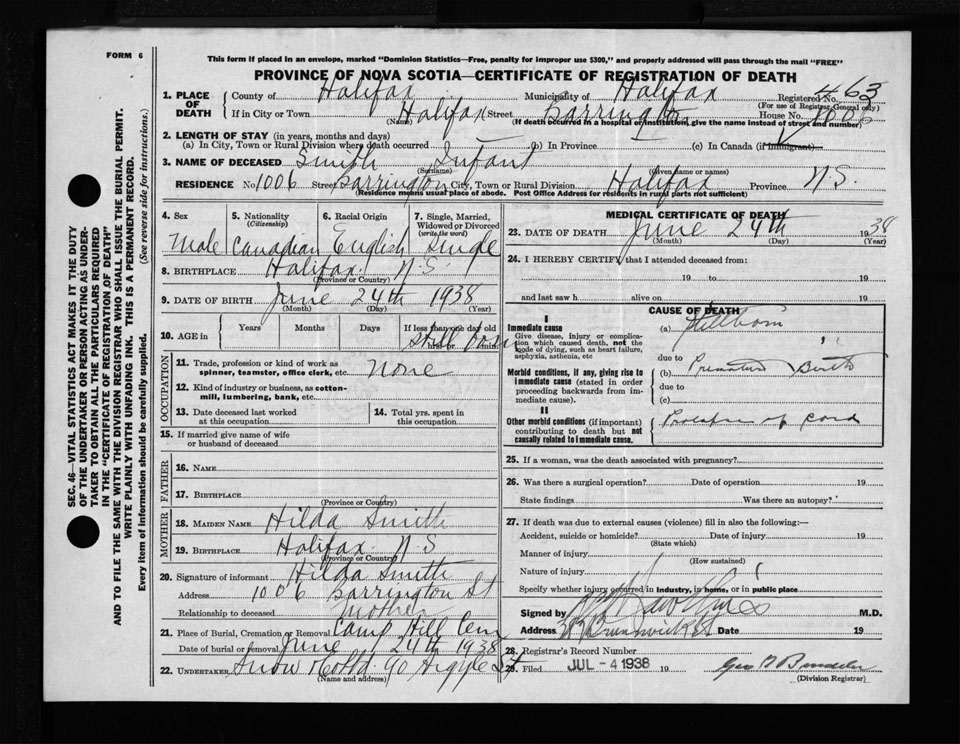 FORM 6
This form if placed in an envelope, marked "Dominion Statistics—Free, penalty for improper use $300," and properly addressed will pass through the mail "FREE"
PROVINCE OF NOVA SCOTIA—CERTIFICATE OF REGISTRATION OF DEATH
Registered No. 463
(For use of Registrar General only)
1. PLACE OF DEATH
County of Halifax Municipality of Halifax
If in City or Town Halifax Street Barrington House No. 1006
(Name) (If death occurred in a hospital or institution, give the name instead of street and number)
2. LENGTH OF STAY (in years, months and days)
(a) In City, Town or Rural Division where death occurred (b) In Province (c) In Canada (if immigrant)
3. NAME OF DECEASED Smith Infant
(Surname) (Given name or names)
RESIDENCE No 1006 Street Barrington City, Town or Rural Division Halifax Province N.S.
(Residence means usual place of abode. Post Office Address for residents in rural parts not sufficient)
4. Sex
Male
5. Nationality
(Citizenship)
Canadian
6. Racial Origin
English
7. Single, Married,
Widowed or Divorced
(write the word)
Single
8. BIRTHPLACE Halifax N.S.
(Province or Country)
9. DATE OF BIRTH June 24th 1938
(Month) (Day) (Year)
10. AGE in
Years Months Days If less than one day old
hrs. or min.
Still born
OCCUPATION
11. Trade, profession or kind of work as
spinner, teamster, office clerk, etc. None
12. Kind of industry or business, as cotton-
mill, lumbering, bank, etc.
13. Date deceased last worked
at this occupation
14. Total yrs. spent in
this occupation
15. If married give name of wife
or husband of deceased
FATHER
16. NAME
17. BIRTHPLACE
(Province or Country)
MOTHER
18. MAIDEN NAME Hilda Smith
19. BIRTHPLACE Halifax N.S
(Province or Country)
20. Signature of informant Hilda Smith
Address 1006 Barrington St
Relationship to deceased mother
21. Place of Burial, Cremation or Removal Camp Hill Cem
Date of burial or removal June 24th 1938
22. UNDERTAKER Snow & Co Ltd. 90 Argyle St
(Name and address)
MEDICAL CERTIFICATE OF DEATH
23. DATE OF DEATH June 24th 1938
(Month) (Day) (Year)
24. I HEREBY CERTIFY that I attended deceased from:
19 to 19
and last saw h alive on 19
CAUSE OF DEATH
I
Immediate cause
Give disease, injury or complica-
tion which caused death, not the
mode of dying, such as heart failure,
asphyxia, asthenia, etc
(a) Stillborn
due to
Morbid conditions, if any, giving rise to
immediate cause (stated in order
proceeding backwards from im-
mediate cause).
(b) Premature Birth
due to
(c)
II
Other morbid conditions (if important)
contributing to death but not
causally related to immediate cause.
Prolapse of cord
25. If a woman, was the death associated with pregnancy?
26. Was there a surgical operation? Date of operation 19
State findings Was there an autopsy?
27. If death was due to external causes (violence) fill in also the following:—
Accident, suicide or homicide? Date of injury 19
(State which)
Manner of injury
(How sustained)
Nature of injury
Specify whether injury occurred in industry, in home, or in public place
Signed by M.D.
Address Brunswick St Date 19
28. Registrar's Record Number
29. Filed JUL - 4 1938 19
(Division Registrar)
SEC. 46—VITAL STATISTICS ACT MAKES IT THE DUTY
OF THE UNDERTAKER OR PERSON ACTING AS UNDER-
TAKER TO OBTAIN ALL THE PARTICULARS REQUIRED
IN THE "CERTIFICATE OF REGISTRATION OF DEATH"
AND TO FILE THE SAME WITH THE DIVISION REGISTRAR WHO SHALL ISSUE THE BURIAL PERMIT.
WRITE PLAINLY WITH UNFADING INK. THIS IS A PERMANENT RECORD.
Every item of information should be carefully supplied. (See reverse side for instructions.)